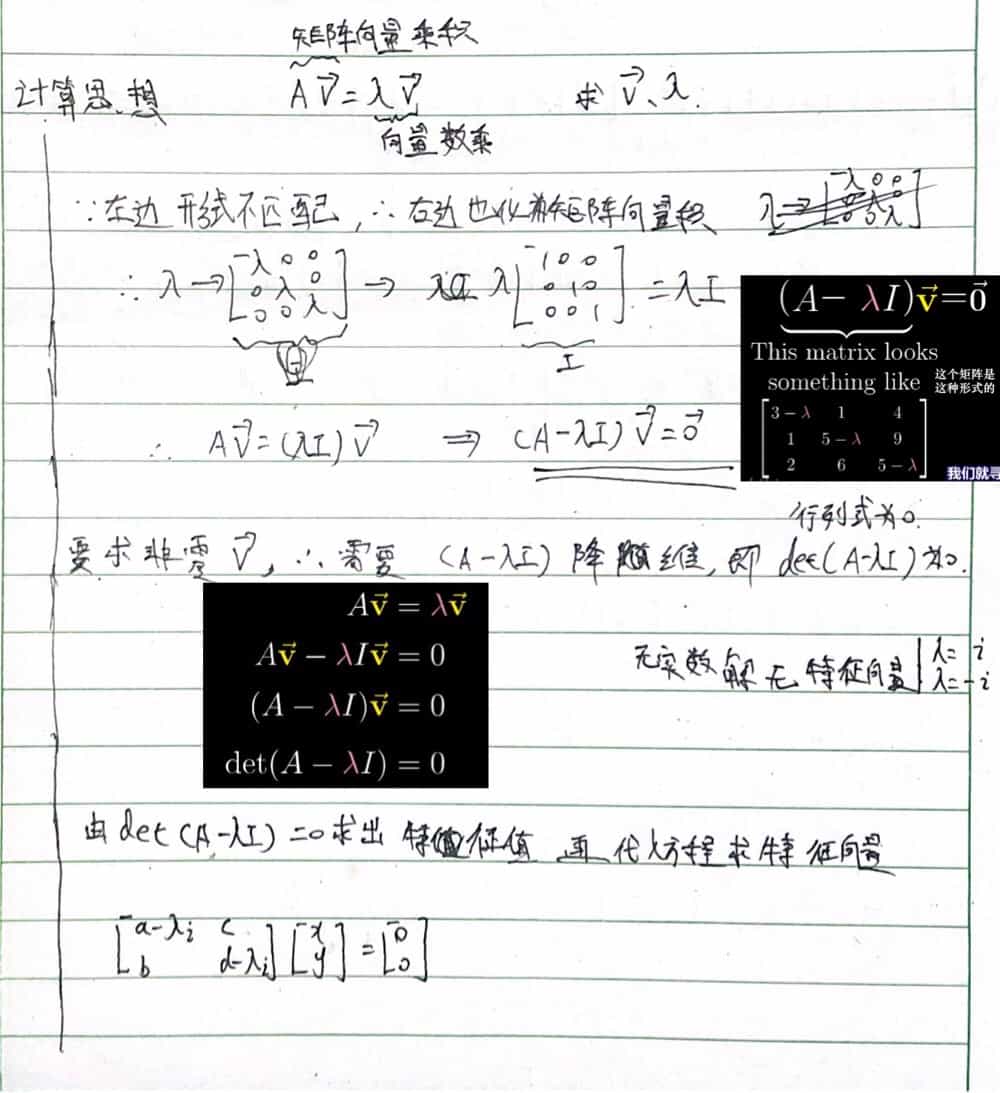 矩阵向量乘积
计算思想 A v⃗ = λ v⃗ 求 v⃗、λ.
向量数乘
∵左边 形式不匹配, ∴ 右边也化为矩阵向量积
∴ λ → [λ 0 0; 0 λ 0; 0 0 λ] → λ [1 0 0; 0 1 0; 0 0 1] = λI
I
(A − λI)v⃗ = 0⃗
This matrix looks
something like 这个矩阵是
这种形式的
3−λ 1 4
1 5−λ 9
2 6 5−λ
我们就寻
∴ A v⃗ = (λI) v⃗ ⇒ (A−λI) v⃗ = 0⃗
行列式为0.
要求非零 v⃗, ∴需要 (A−λI) 降维, 即 det(A−λI)为0.
Av⃗ = λv⃗
Av⃗ − λIv⃗ = 0
(A − λI)v⃗ = 0
det(A − λI) = 0
无实数解 无特征向量 λ= i
λ=−i
由 det(A−λI)=0求出 特征值 再代入方程求特征向量
[a−λi c; b d−λi] [x; y] = [0; 0]